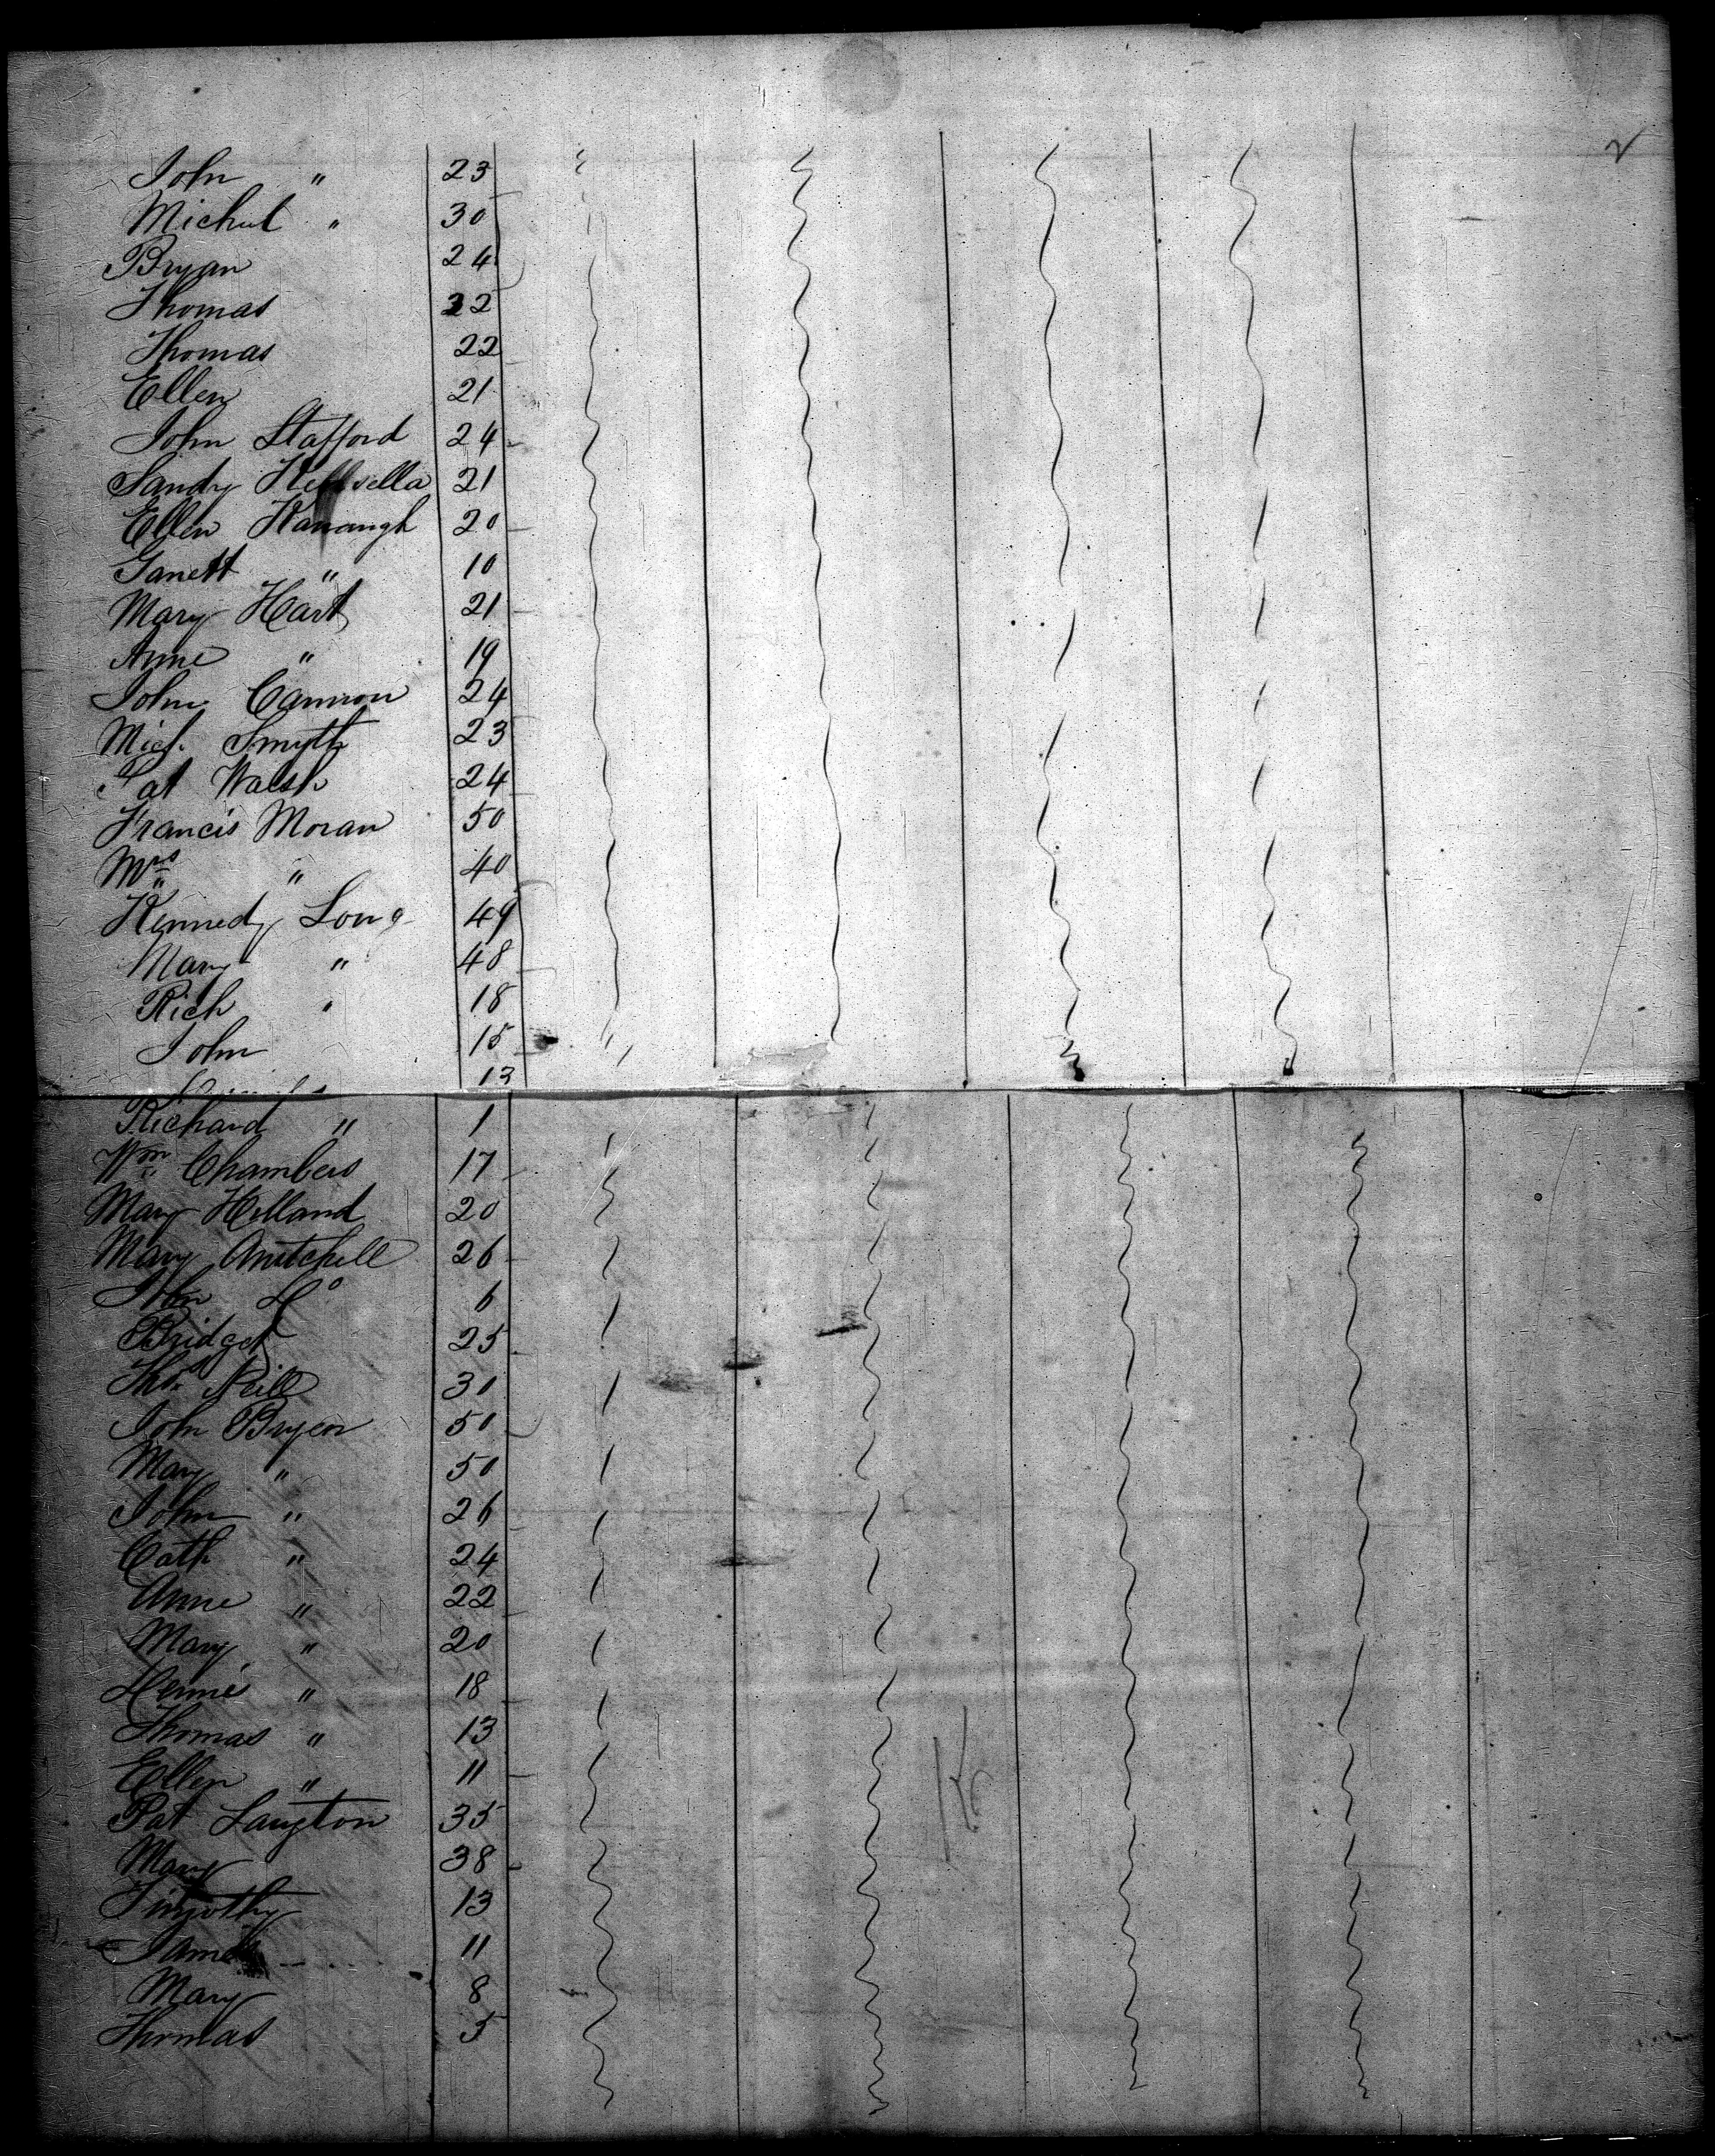 John " 23
Michul " 30
Bryan 24
Thomas 22
Thomas 22
Ellen 21
John Stafford 24
Sandy 21
Ellen Kavanagh 20
Garrett " 10
Mary Hart 21
Anne " 19
John Cannon 24
Mich. Smyth 23
Pat Walsh 24
Francis Moran 50
Mrs " 40
Kennedy Long 49
Mary " 48
Rich " 18
John 15
13
Richard " 1
Wm Chambers 17
Mary Holland 20
Mary 26
John Do 6
Bridget 25
Thos Neill 30
John Bryan 50
Mary " 50
John " 26
Cath " 24
Anne " 22
Mary " 20
18
Thomas " 13
Ellen " 11
Pat Langton 35
Mary 38
Timothy 13
James 11
Mary 8
Thomas 5